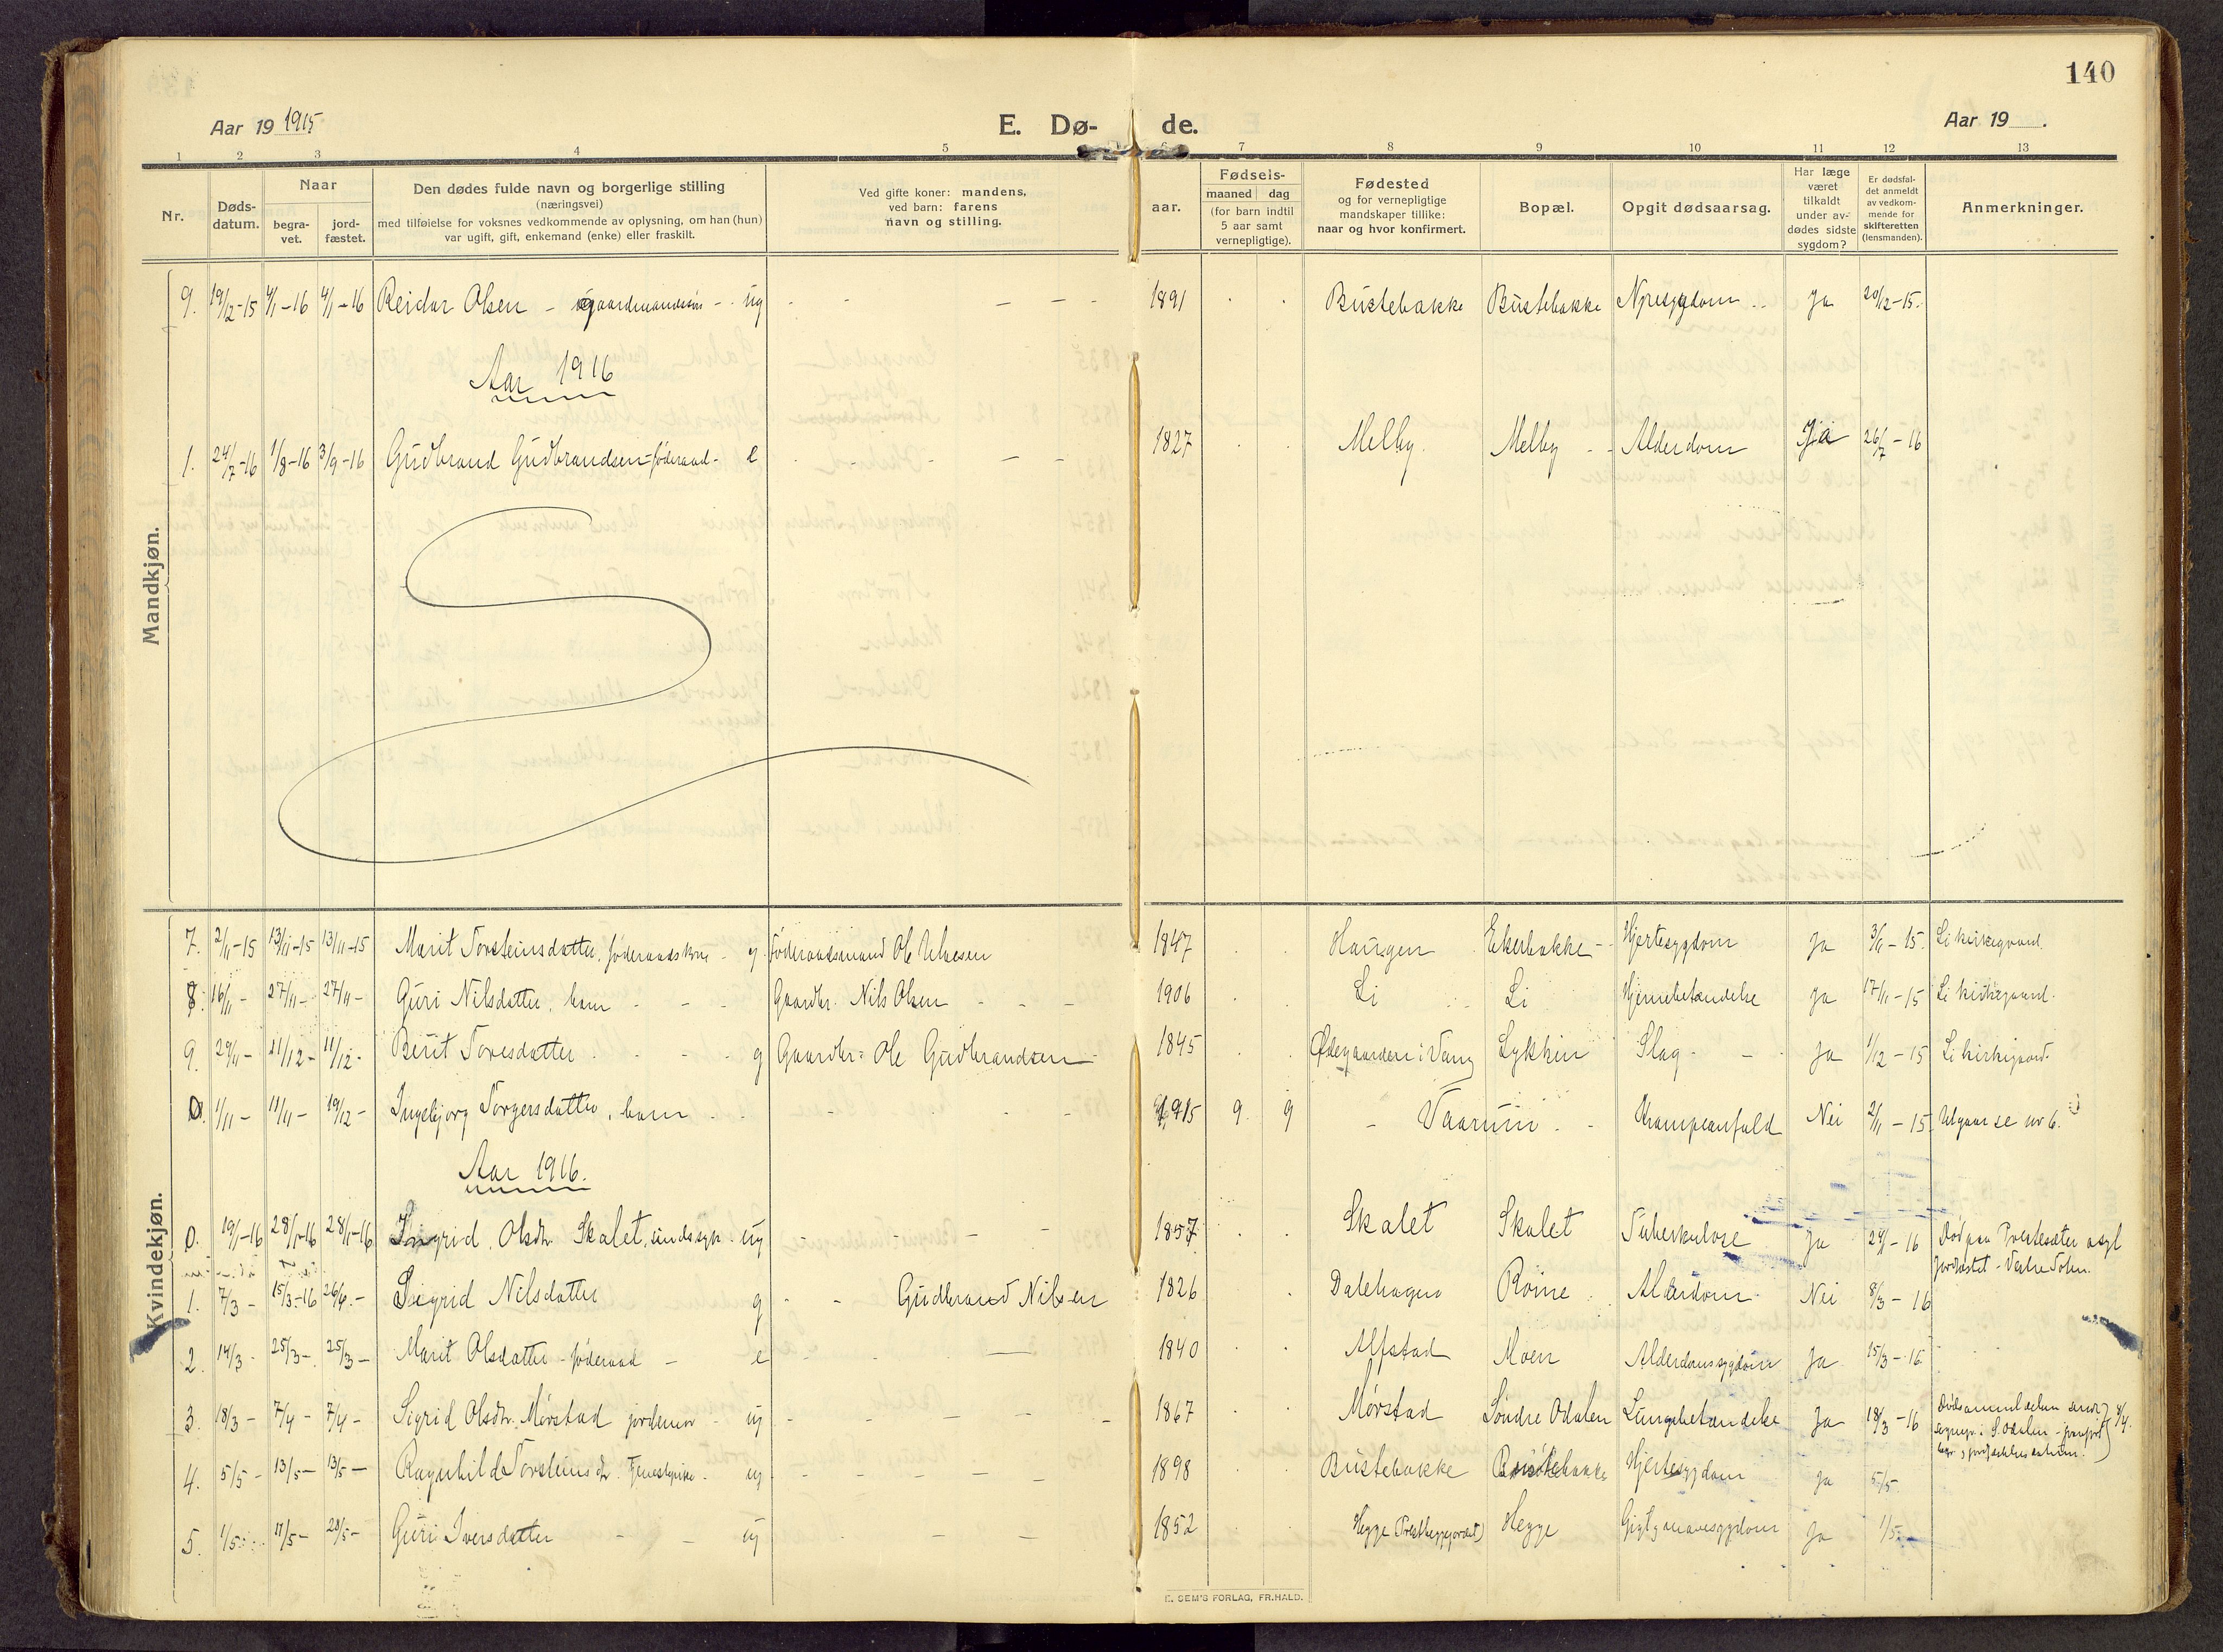 140
Aar 19 1915
E. Dø- de.
Aar 19
1 2 3 4 5 6 7 8 9 10 11 12 13
Nr.
Døds-
datum.
Naar
begra-
vet.
jord-
fæstet.
Den dødes fulde navn og borgerlige stilling
(næringsvei)
med tilføielse for voksnes vedkommende av oplysning, om han (hun)
var ugift, gift, enkemand (enke) eller fraskilt.
Ved gifte koner: mandens,
ved barn: farens
navn og stilling.
Fødsels-
aar.
maaned dag
(for barn indtil
5 aar samt
vernepligtige).
Fødested
og for vernepligtige
mandskaper tillike:
naar og hvor konfirmert.
Bopæl.
Opgit dødsaarsag.
Har læge
været
tilkaldt
under av-
dødes sidste
sygdom?
Er dødsfal-
det anmeldt
av vedkom-
mende for
skifteretten
(lensmanden).
Anmerkninger.
Mandkjøn.
9. 19/12-15 4/1-16 4/1-16 Reidar Olsen - gaardmandssøn - ug - - - - 1891 Bustebakke Bustebakke Nyresygdom Ja 20/12-15.
Aar 1916
1. 24/7-16 1/8-16 3/9-16 Gudbrand Gudbrandsen - føderaad - e - - 1827 Melby Melby - Alderdom Ja 26/7-16
Kvindekjøn.
7. 2/11-15 13/11-15 13/11-15 Marit Torsteinsdatter, føderaadskone - g. Føderaadsmand Ole 1847 Haugen Ekerbakke - Hjertesygdom Ja 3/11-15. Li kirkegaard.
8. 16/11- 27/11- 27/11- Guri Nilsdatter, barn - - - Gaardbr. Nils Olsen - - - 1906 Li Li Hjernebetændelse Ja 17/11-15 Li kirkegaard.
9. 29/11- 11/12- 11/12- Berit Toresdatter - - g Gaardbr. Ole Gudbrandsen 1845 Ødegaarden i Vang Lykkin Slag - - Ja 1/12-15 Li kirkegaard.
0. 1/11- 11/11- 19/12- Ingebjorg Torgersdatter, barn - - - 1915 9. 9 - Vaarum - Krampeanfald Nei 2/11-15. Utgaar se nr 6.
Aar 1916.
0. 19/1-16 28/1-16 28/1-16 Ingrid Olsdtr. Skalet, ug - - - - 1857 Skalet Skalet Tuberkulose Ja 24/1-16 Død paa asyl
jordfæstet - Vestre Toten.
1. 7/3- 15/3-16 26/4- Sigrid Nilsdatter g - - Gudbrand Nilsen 1826 Dalehagen Roine Alderdom Nei 8/3-16
2. 14/3- 25/3- 25/3- Marit Olsdatter - føderaad - e - - 1840 Alfstad Moen Alderdomssygdom Ja 15/3-16.
3. 18/3- 7/4- 7/4- Sigrid Olsdtr. Mørstad jordemor - ug - - - - - 1867 Mørstad Søndre Odalen Lungebetændelse Ja 18/3-16
4. 5/5- 13/5- 13/5- Ragnhild Torsteinsdtr. Tjenestepike - ug - - - - - 1898 Bustebakke Bustebakke Hjertesygdom Ja 5/5.
5. 1/5 11/5- 28/5- Guri Iversdatter - - ug - - - 1852 Hegge Hegge Ja 1/5
E. SEM'S FORLAG, FR.HALD.